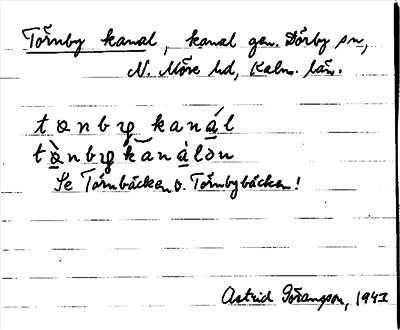 Törnby kanal, kanal gen. Dörby sn,
N. Möre hd, Kalm. län.
tɷnbyͅ kanál
tɷ̀nbyͅ kanàlən
Se Törnbäcken o. Törnbybäcken!
Astrid Göransson, 1943